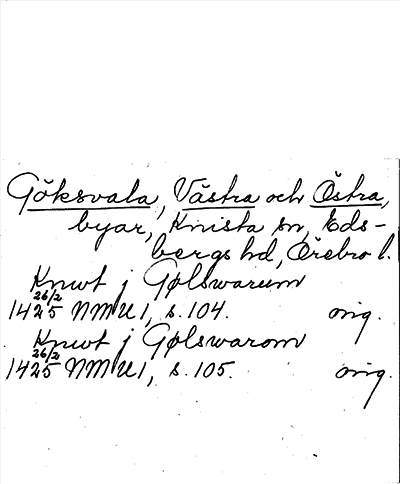 Göksvala, Västra och Östra,
byar, Knista sn, Eds-
bergs hd, Örebro l.
Knwt j Gølswarum
1425 26/2 NMU 1, s. 104. orig.
Knwt j Gølswarom
1425 26/2 NMU 1, s. 105. orig.